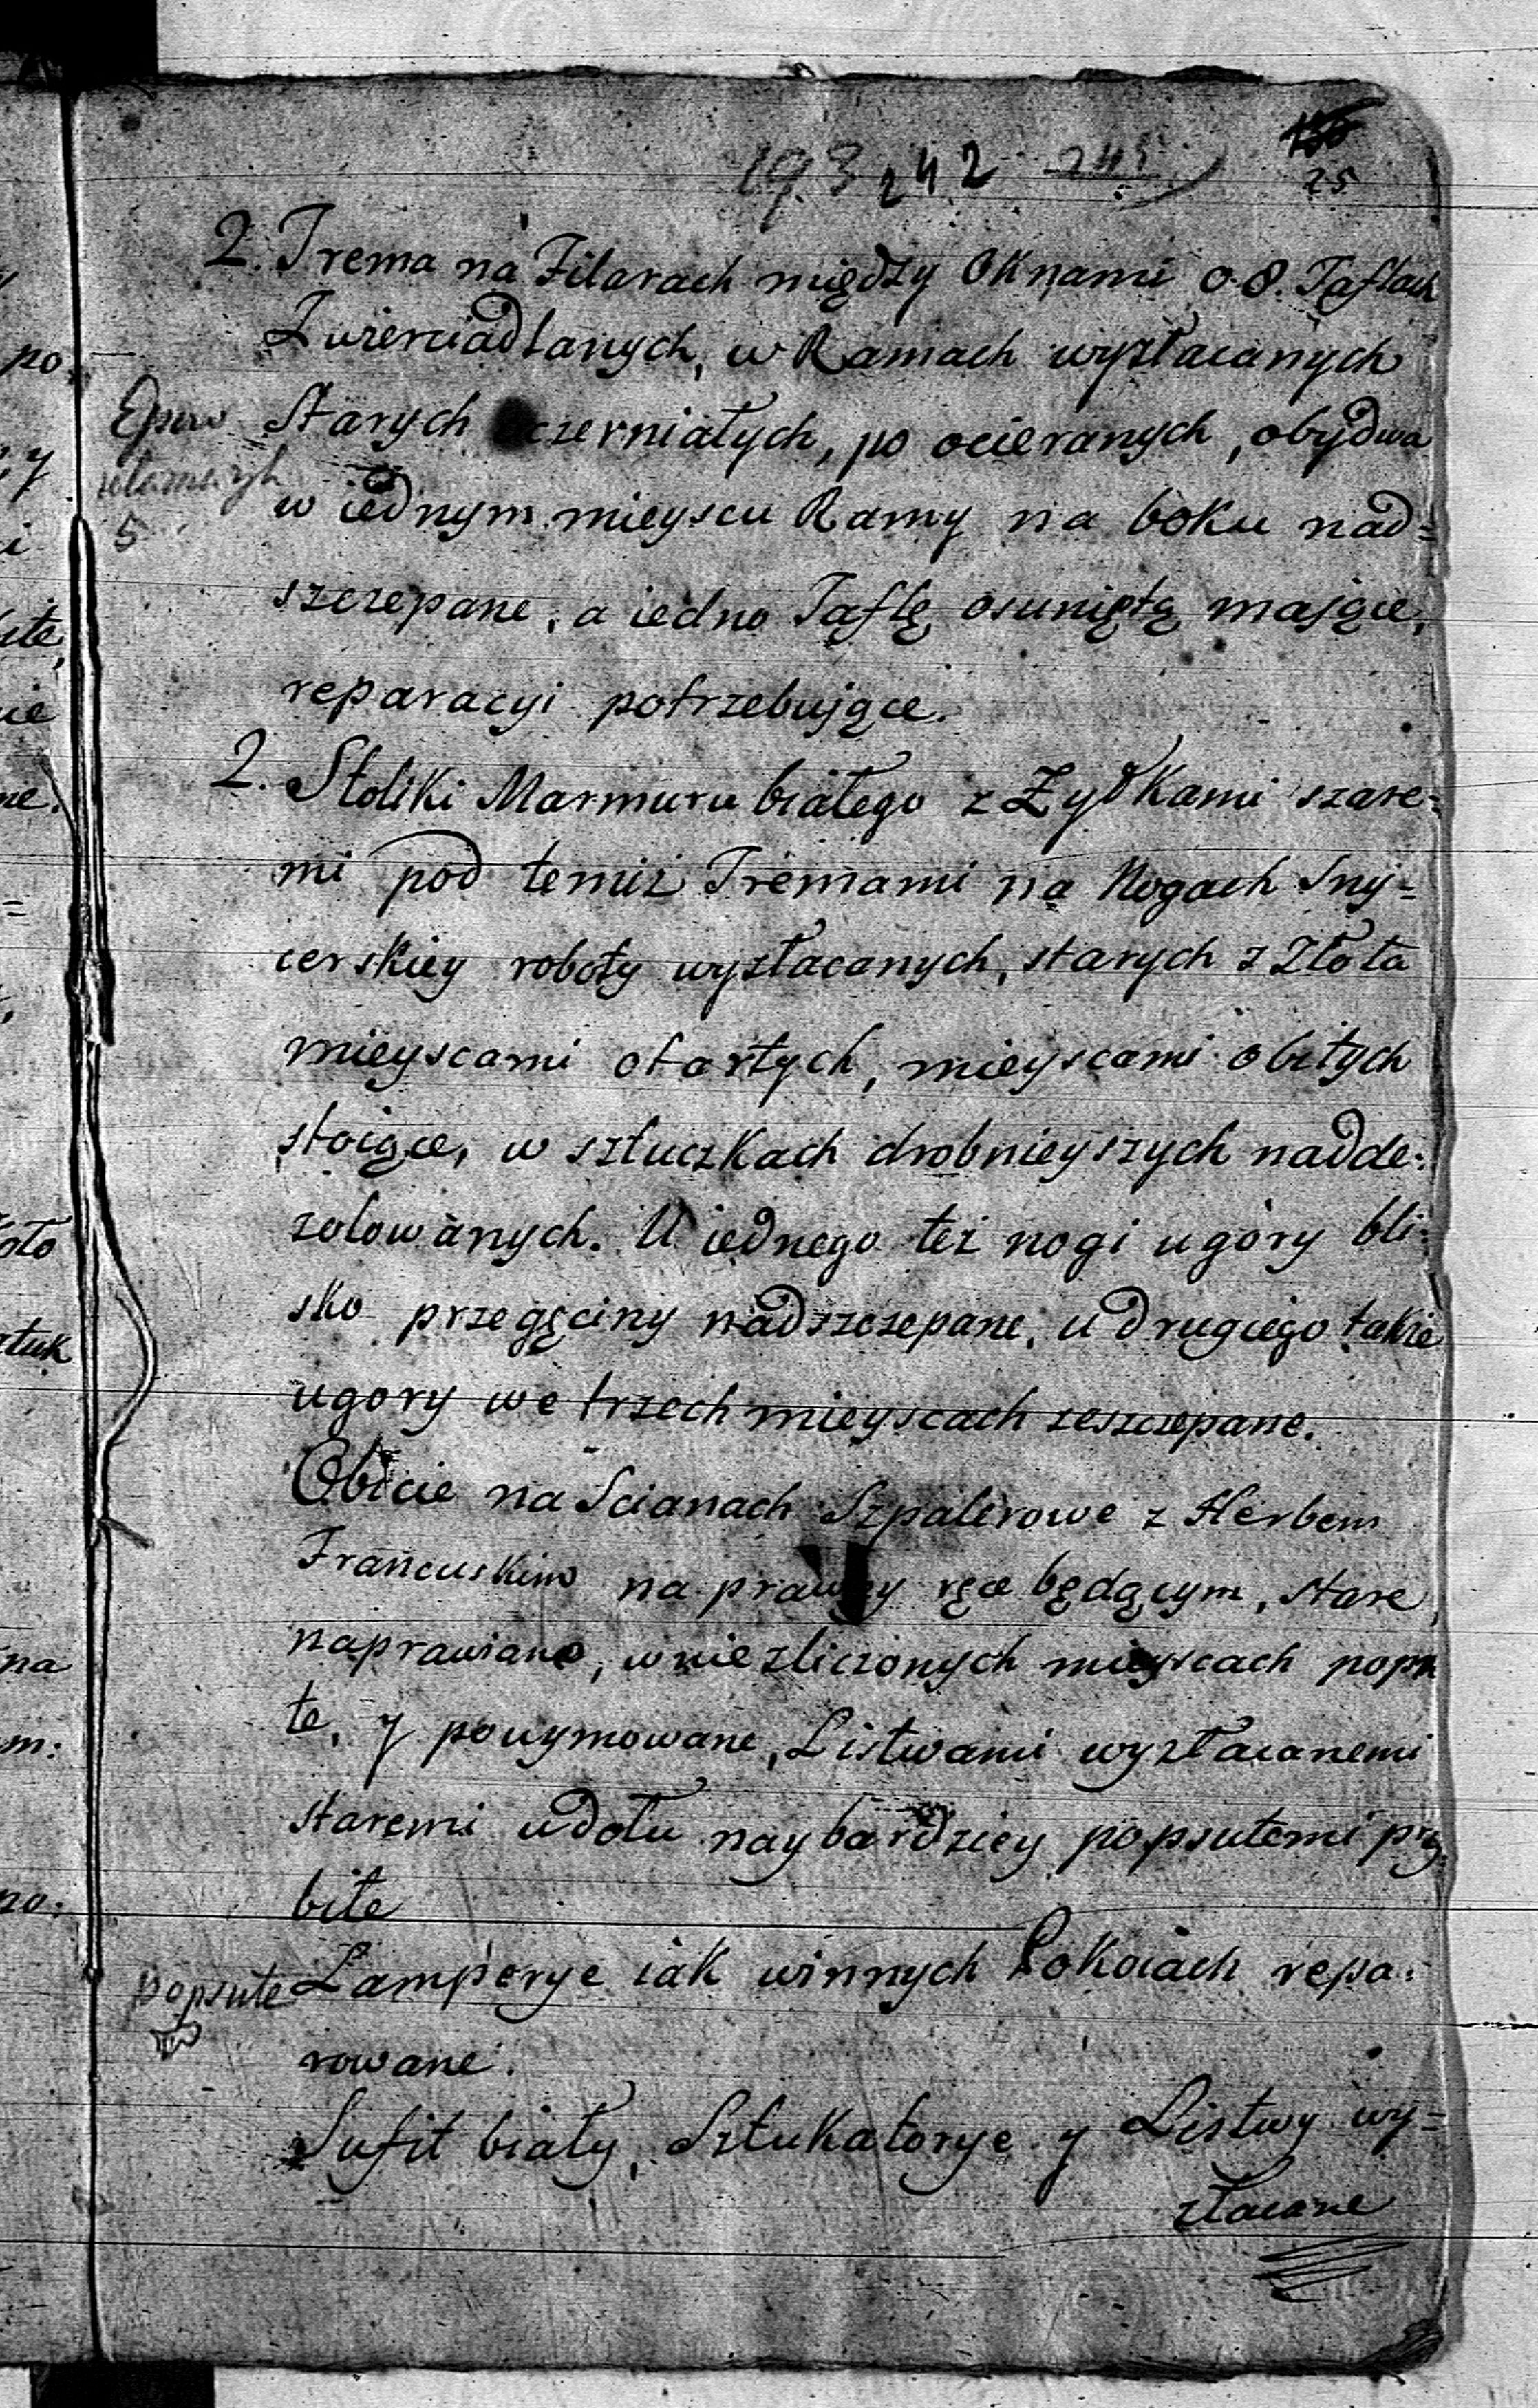 193 242 245
25
2. Trema na Filarach między Oknami o 8. Taflach
Zwierciadlanych, w Ramach wyzłacanych
Starych czerniałych, po ocieranych, obydwa
w iednym mieyscu Ramy na boku nad=
szczepane, a iedno Taflę osuniętą mające,
reparacyi potrzebujące.
2. Stoliki Marmuru białego z Żyłkami szare=
mi pod temiż Tremami na Nogach Sny=
cerskiey roboty wyzłacanych, starych z Złota
mieyscami otartych, mieyscami obitych
stoiące, w sztuczkach drobnieyszych nadde:
zolowanych. U iednego też nogi u góry bli:
sko przegęciny nadszczepane, u drugiego także
ugory we trzech mieyscach zeszczepane.
Obicie na Scianach Szpalerowe z Herbem
Francuskim na prawey ręce będącym, stare,
naprawiane, w niezliczonych mieyscach popru
te, y powymowane, Listwami wyzłacanemi
staremi u dołu naybardziey popsutemi przy
bite
popsute Lamperye iak winnych Pokoiach repa:
rowane.
Sufit biały, Sztukatorye y Listwy wy=
złacane